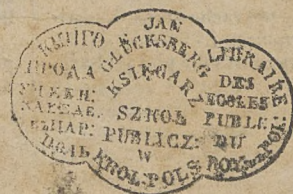 JAN
GLÜCKSBERG
KSIĘGARZ
SZKOŁ
PUBLICZ:
W
KROL: POLS:
КНИГО
ПРОДА
ВЪ ЦАР:
ПОЛЬ
LIBRAIRE
DES
ECOLES
PUBL:
DU
ROY: DE POL: